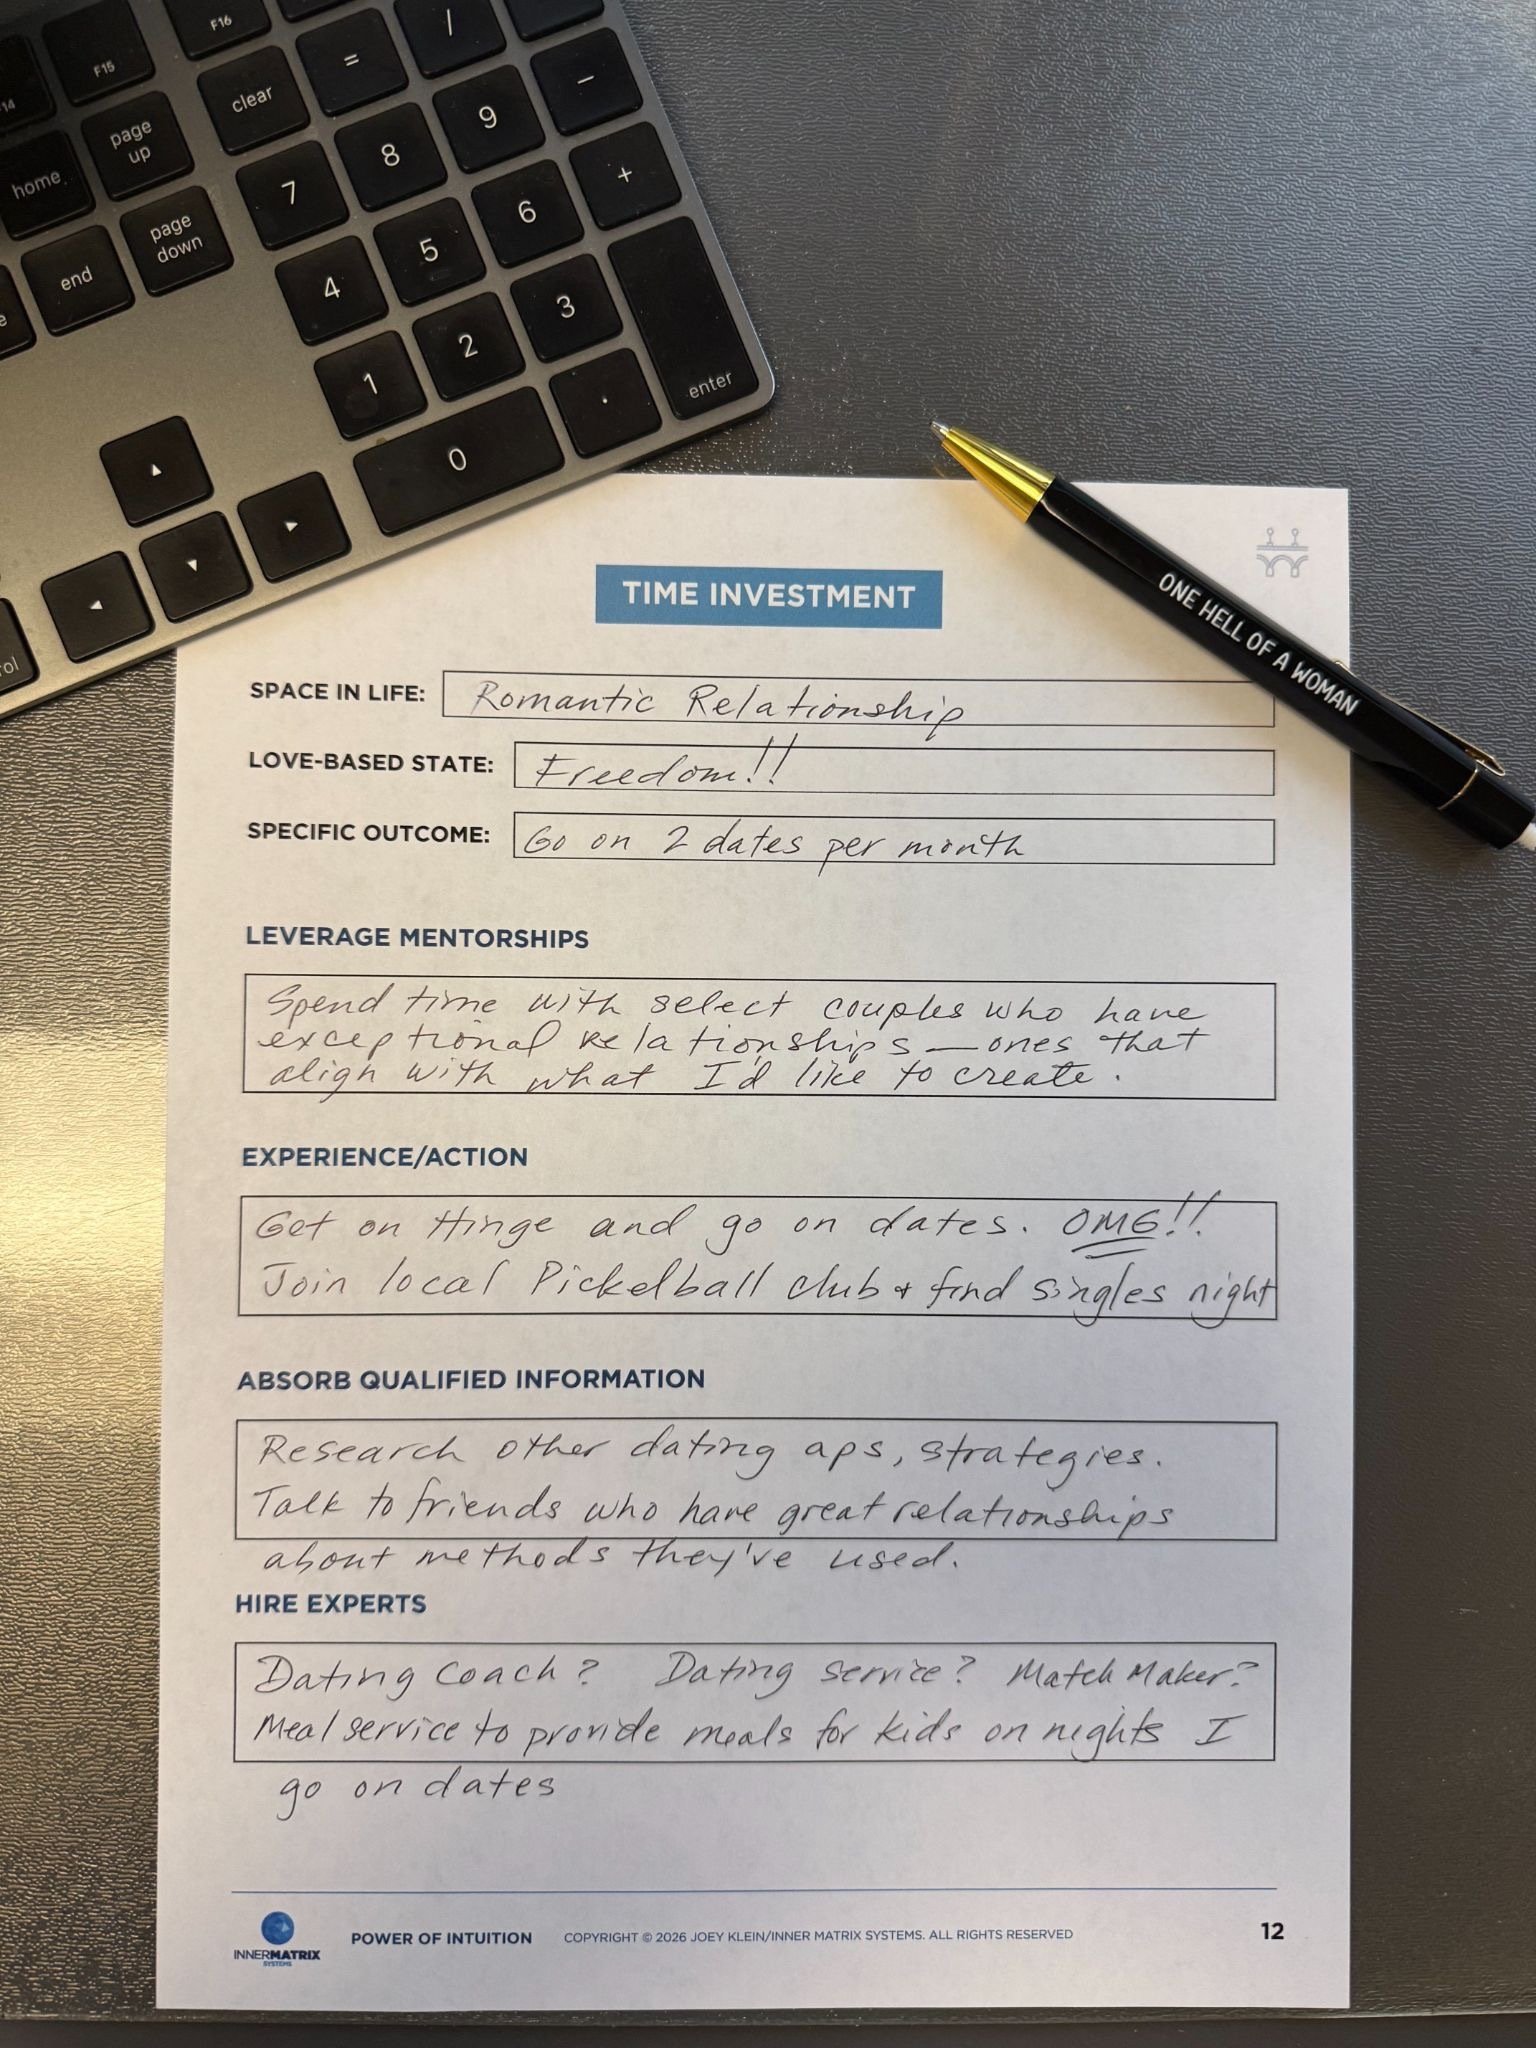 F16
/
F15
=
F14
clear
–
page
up
9
home
8
7
+
page
down
6
end
5
4
3
2
1
enter
.
0
ONE HELL OF A WOMAN
TIME INVESTMENT
SPACE IN LIFE: Romantic Relationship
LOVE-BASED STATE: Freedom!!
SPECIFIC OUTCOME: Go on 2 dates per month
LEVERAGE MENTORSHIPS
Spend time with select couples who have
exceptional relationships — ones that
align with what I'd like to create.
EXPERIENCE/ACTION
Get on Hinge and go on dates. OMG!!
Join local Pickelball club & find singles night
ABSORB QUALIFIED INFORMATION
Research other dating aps, strategies.
Talk to friends who have great relationships
about methods they've used.
HIRE EXPERTS
Dating Coach? Dating service? Match Maker?
Meal service to provide meals for kids on nights I
go on dates
INNERMATRIX
SYSTEMS
POWER OF INTUITION COPYRIGHT © 2026 JOEY KLEIN/INNER MATRIX SYSTEMS. ALL RIGHTS RESERVED 12